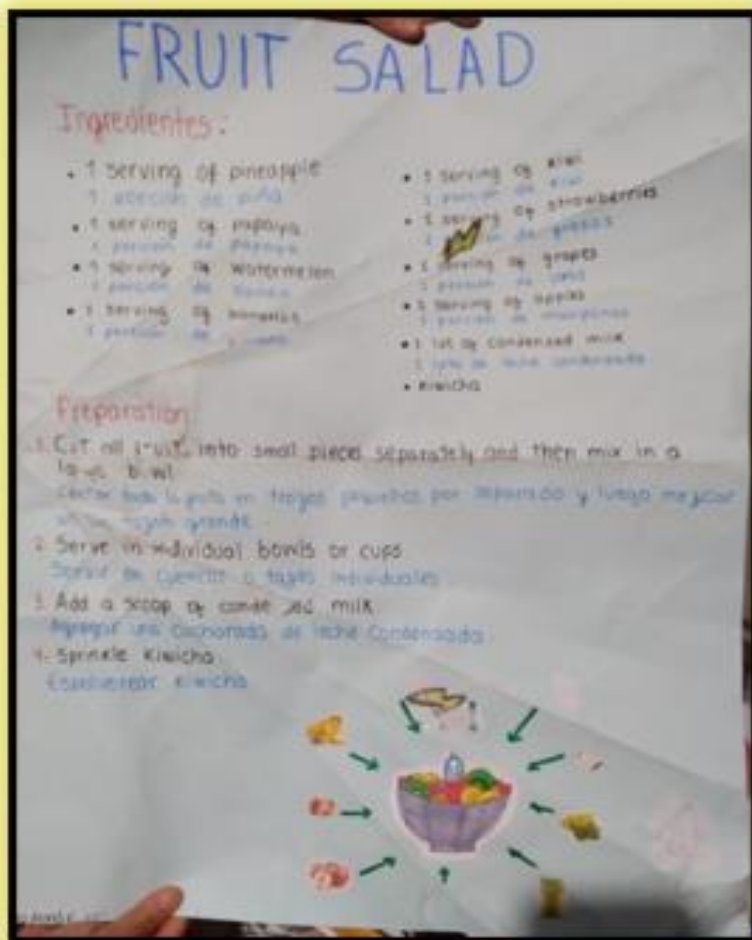 FRUIT SALAD
Ingredientes:
• 1 serving of pineapple
1 porción de piña
• 1 serving of papaya
1 porción de papaya
• 1 serving of watermelon
1 porción de
• 1 serving of bananas
1 porción de
• 1 serving of kiwi
1 porción de kiwi
• 1 serving of strawberries
1 de
• 1 serving of grapes
1 porción de uva
• 1 serving of apples
1 porción de manzanas
• 1 lot of condensed milk
1 lata de leche condensada
• Kiwicha
Preparation
1. Cut all fruits into small pieces separately and then mix in a
bowl
toda la fruta en trozos pequeños por separado y luego mezclar
grande
2. Serve in individual bowls or cups
Servir en o tazas individuales
3. Add a scoop of condensed milk
Agregar una cucharada de leche condensada
4. Sprinkle Kiwicha
Kiwicha